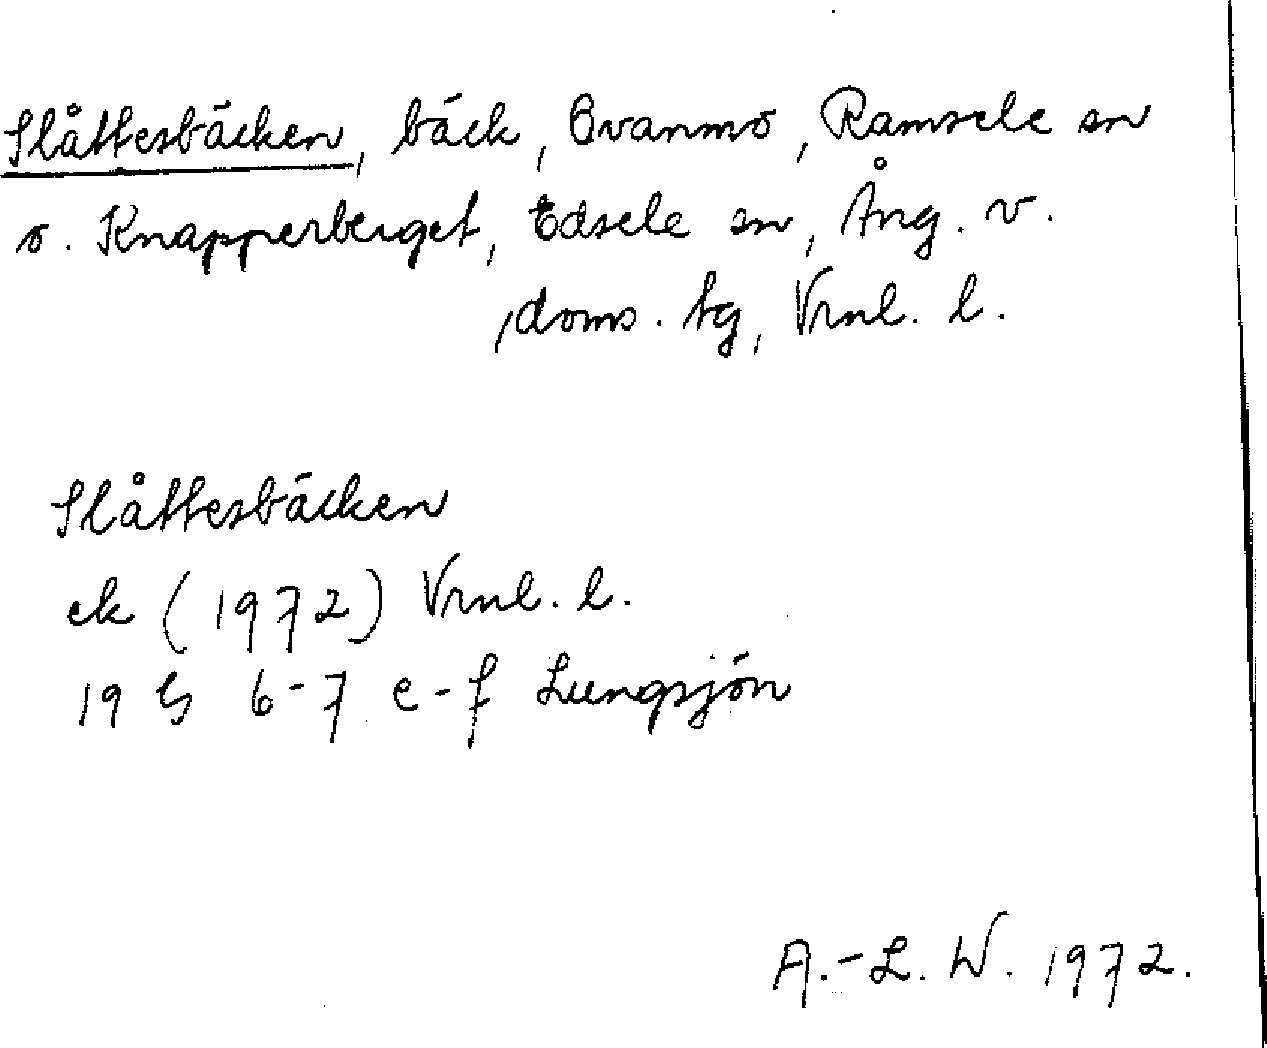 Slåttesbäcken, bäck, Ovanmo, Ramsele sn
o. Knapperberget, Edsele sn, Ång. v.
doms. tg, Vrnl. l.
Slåttesbäcken
ek (1972) Vrnl. l.
19 G 6-7 e-f Lungsjön
A.-L. W. 1972.